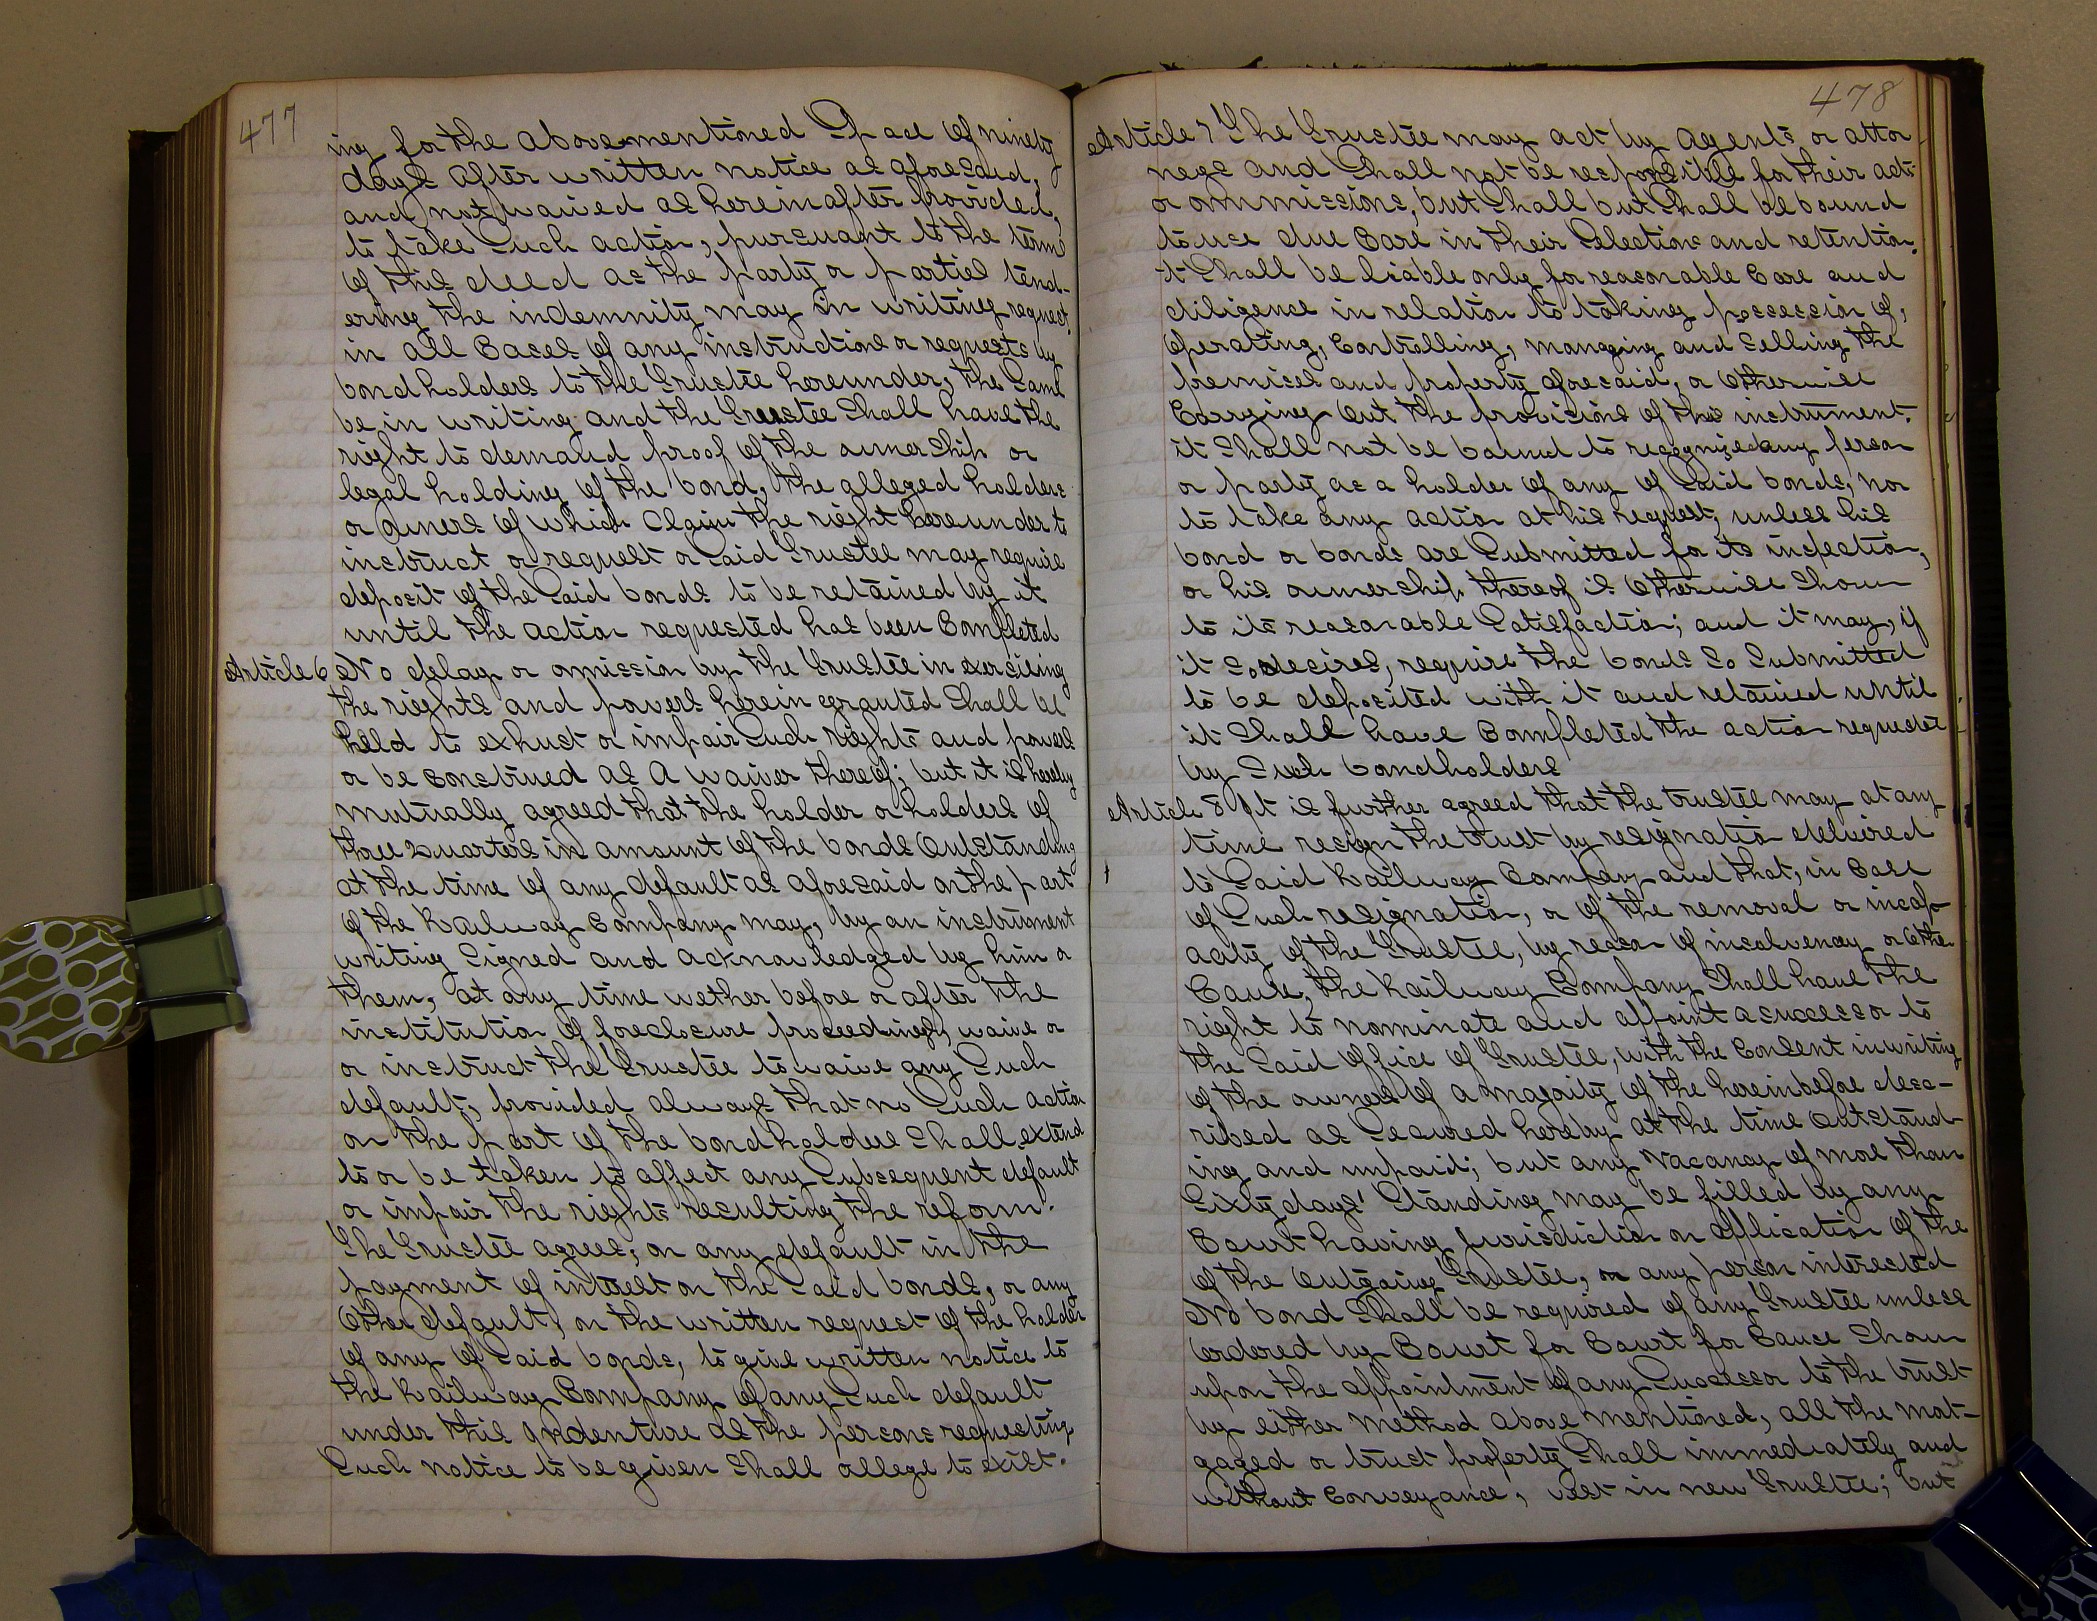 477
ing for the abovementioned Space of ninety
days after written notice as aforesaid,
and not waived as hereinafter provided,
to take Such action, pursuant to the terms
of this deed as the party or parties tend-
ering the indemnity may in writing request.
in all Cases of any instructions or requests by
bondholders to the Trustee hereunder, the Same
be in writing and the Trustee Shall have the
right to demand proof of the ownership or
legal holding of the bond, the alleged holders
or owners of which Claim the right hereunder to
instruct or request or Said Trustee may require
deposit of the Said bonds to be retained by it
until the action requested has been Completed
Article 6 No delay or omission by the Trustee in exercising
the rights and powers herein granted Shall be
held to exhust or impair Such rights and powers
or be Construed as A waiver thereof; but it is hereby
mutually agreed that the holder or holders of
three quarters in amount of the bonds Outstanding
at the time of any default as aforesaid on the part
of the Railway Company may, by an instrument
writing Signed and acknowledged by him or
them, at any time wether before or after the
institution of foreclosure proceedings, waive or
or instruct the Trustee to waive any Such
default, provided always that no Such action
on the part of the bondholders Shall extend
to or be taken to affect any Subsequent default
or impair the rights resulting the refrom.
The Trustee agrees, on any default in the
payment of interest on the Said bonds, or any
Other default, on the written request of the holder
of any of Said bonds, to give written notice to
the Railway Company of any Such default
under this indenture as the persons requesting
Such notice to be given Shall allege to exist.
478
Article 7 The Trustee may act by agents or attor-
neys and Shall not be responsible for their acts
or ommissions, but Shall but Shall be bound
to use due Care in their Selection and retention.
it Shall be liable only for reasonable Care and
diligence in relation to taking possession of,
Operating, Controlling, managing and Selling the
premises and property aforesaid, or Otherwise
Carrying Out the provisions of this instrument.
it Shall not be bound to recognize any person
or party as a holder of any of Said bonds, nor
to take any action at his request, unless his
bond or bonds are Submitted for its inspection,
or his ownership thereof is Otherwise Shown
to its reasonable Satisfaction; and it may, if
it So desires, require the bonds So Submitted
to be deposited with it and retained until
it Shall have Completed the action requested
by Such bondholders
Article 8 It is further agreed that the trustee may at any
time resign the trust by resignation delivered
to Said Railway Company and that, in Case
of Such resignation, or of the removal or incap-
acity of the Trustee, by reason of insolvency or Other
Cause, the Railway Company Shall have the
right to nominate and appoint a successor to
the Said Office of Trustee, with the Consent in writing
of the owners of a majority of the hereinbefore desc-
ribed as Secured hereby at the time Outstand-
ing and unpaid; but any Vacancy of more than
Sixty days' Standing may be filled by any
Court having jurisdiction on application of the
of the Outgoing Trustee, or any person interested
No bond Shall be required of any Trustee unless
Ordered by Court for Court for Cause Shown
upon the appointment of any Successor to the trust
by either method above mentioned, all the mot-
gaged or trust property Shall immediately and
without Conveyance, vest in new Trustee; but